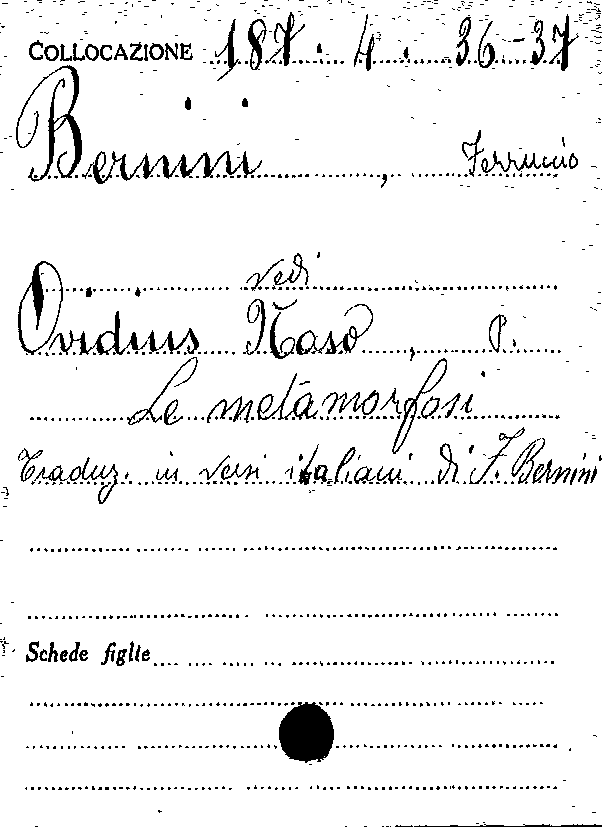 COLLOCAZIONE 187. 4. 36-37
Bernini, Ferruccio
vedi
Ovidius Naso, P.
Le metamorfosi
Traduz. in versi italiani di F. Bernini
Schede figlie